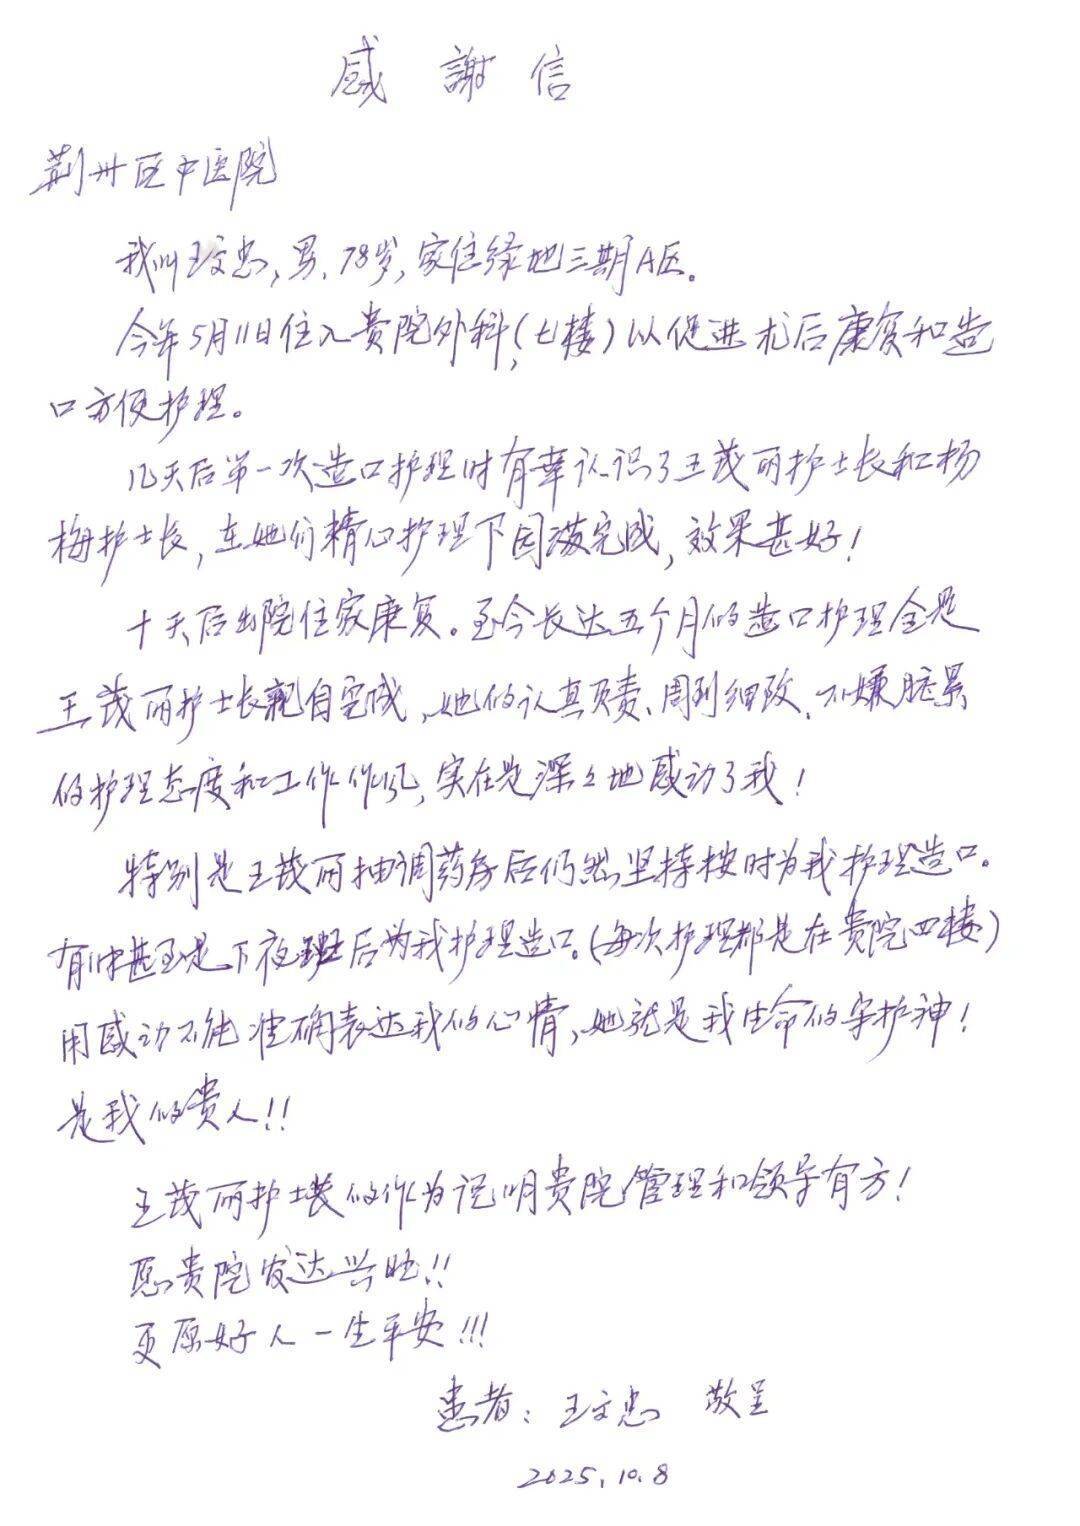 感謝信
荆州区中医院
我叫王文忠,男,78岁,家住绿地三期A区。
今年5月11日住入贵院外科(七楼)以促进术后康复和造
口方便护理。
几天后第一次造口护理时有幸认识了王茂丽护士长和杨
梅护士长,在她们精心护理下圆满完成,效果甚好!
十天后出院住家康复。至今长达五个月的造口护理全是
王茂丽护士长亲自完成,她的认真负责、周到细致、不嫌脏累
的护理态度和工作作风,实在是深々地感动了我!
特别是王茂丽抽调药房后仍然坚持按时为我护理造口。
有时甚至是下夜班后为我护理造口。(每次护理都是在贵院四楼)
用感动不能准确表达我的心情,她就是我生命的守护神!
是我的贵人!!
王茂丽护士长的作为说明贵院管理和领导有方!
愿贵院发达兴旺!!
更愿好人一生平安!!!
患者:王文忠 敬呈
2025.10.8